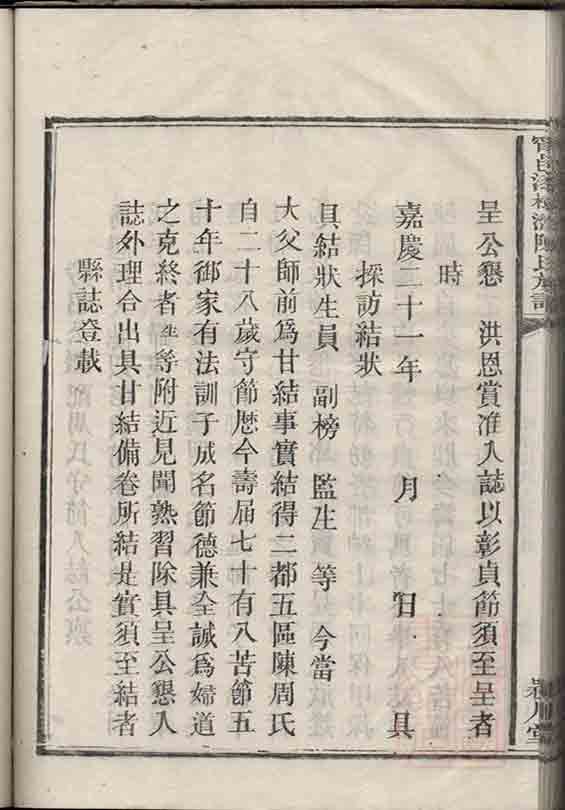 呈公懇　洪恩賞准入誌以彰貞節須至呈者
時
嘉慶二十一年　月　日　具
採訪結狀
具結狀生員　副榜　監生　等　今當
大父師前爲甘結事實結得二都五區陳周氏
自二十八歲守節厯今壽屆七十有八苦節五
十年御家有法訓子成名節德兼全誠爲婦道
之克終者生等附近見聞熟習除具呈公懇入
誌外理合出具甘結備卷所結是實須至結者
縣誌登載
潁川堂